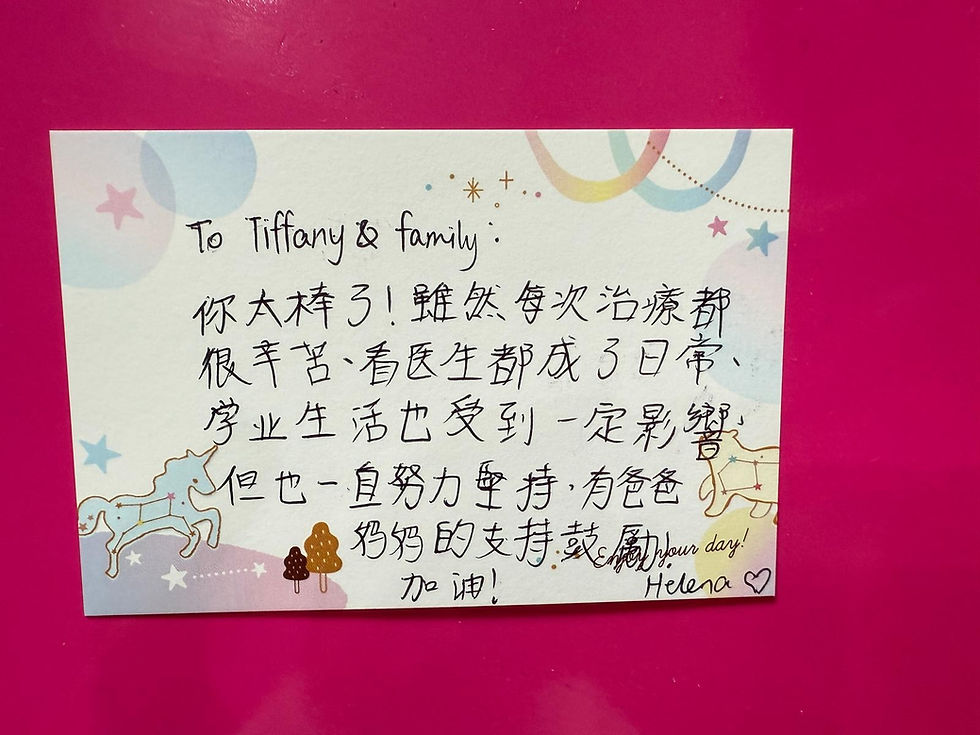 To Tiffany & family:
你太棒了!雖然每次治療都
很辛苦、看医生都成了日常、
学业生活也受到一定影響,
但也一直努力坚持,有爸爸
妈妈的支持鼓勵!
Enjoy your day!
加油!
Helena ♡